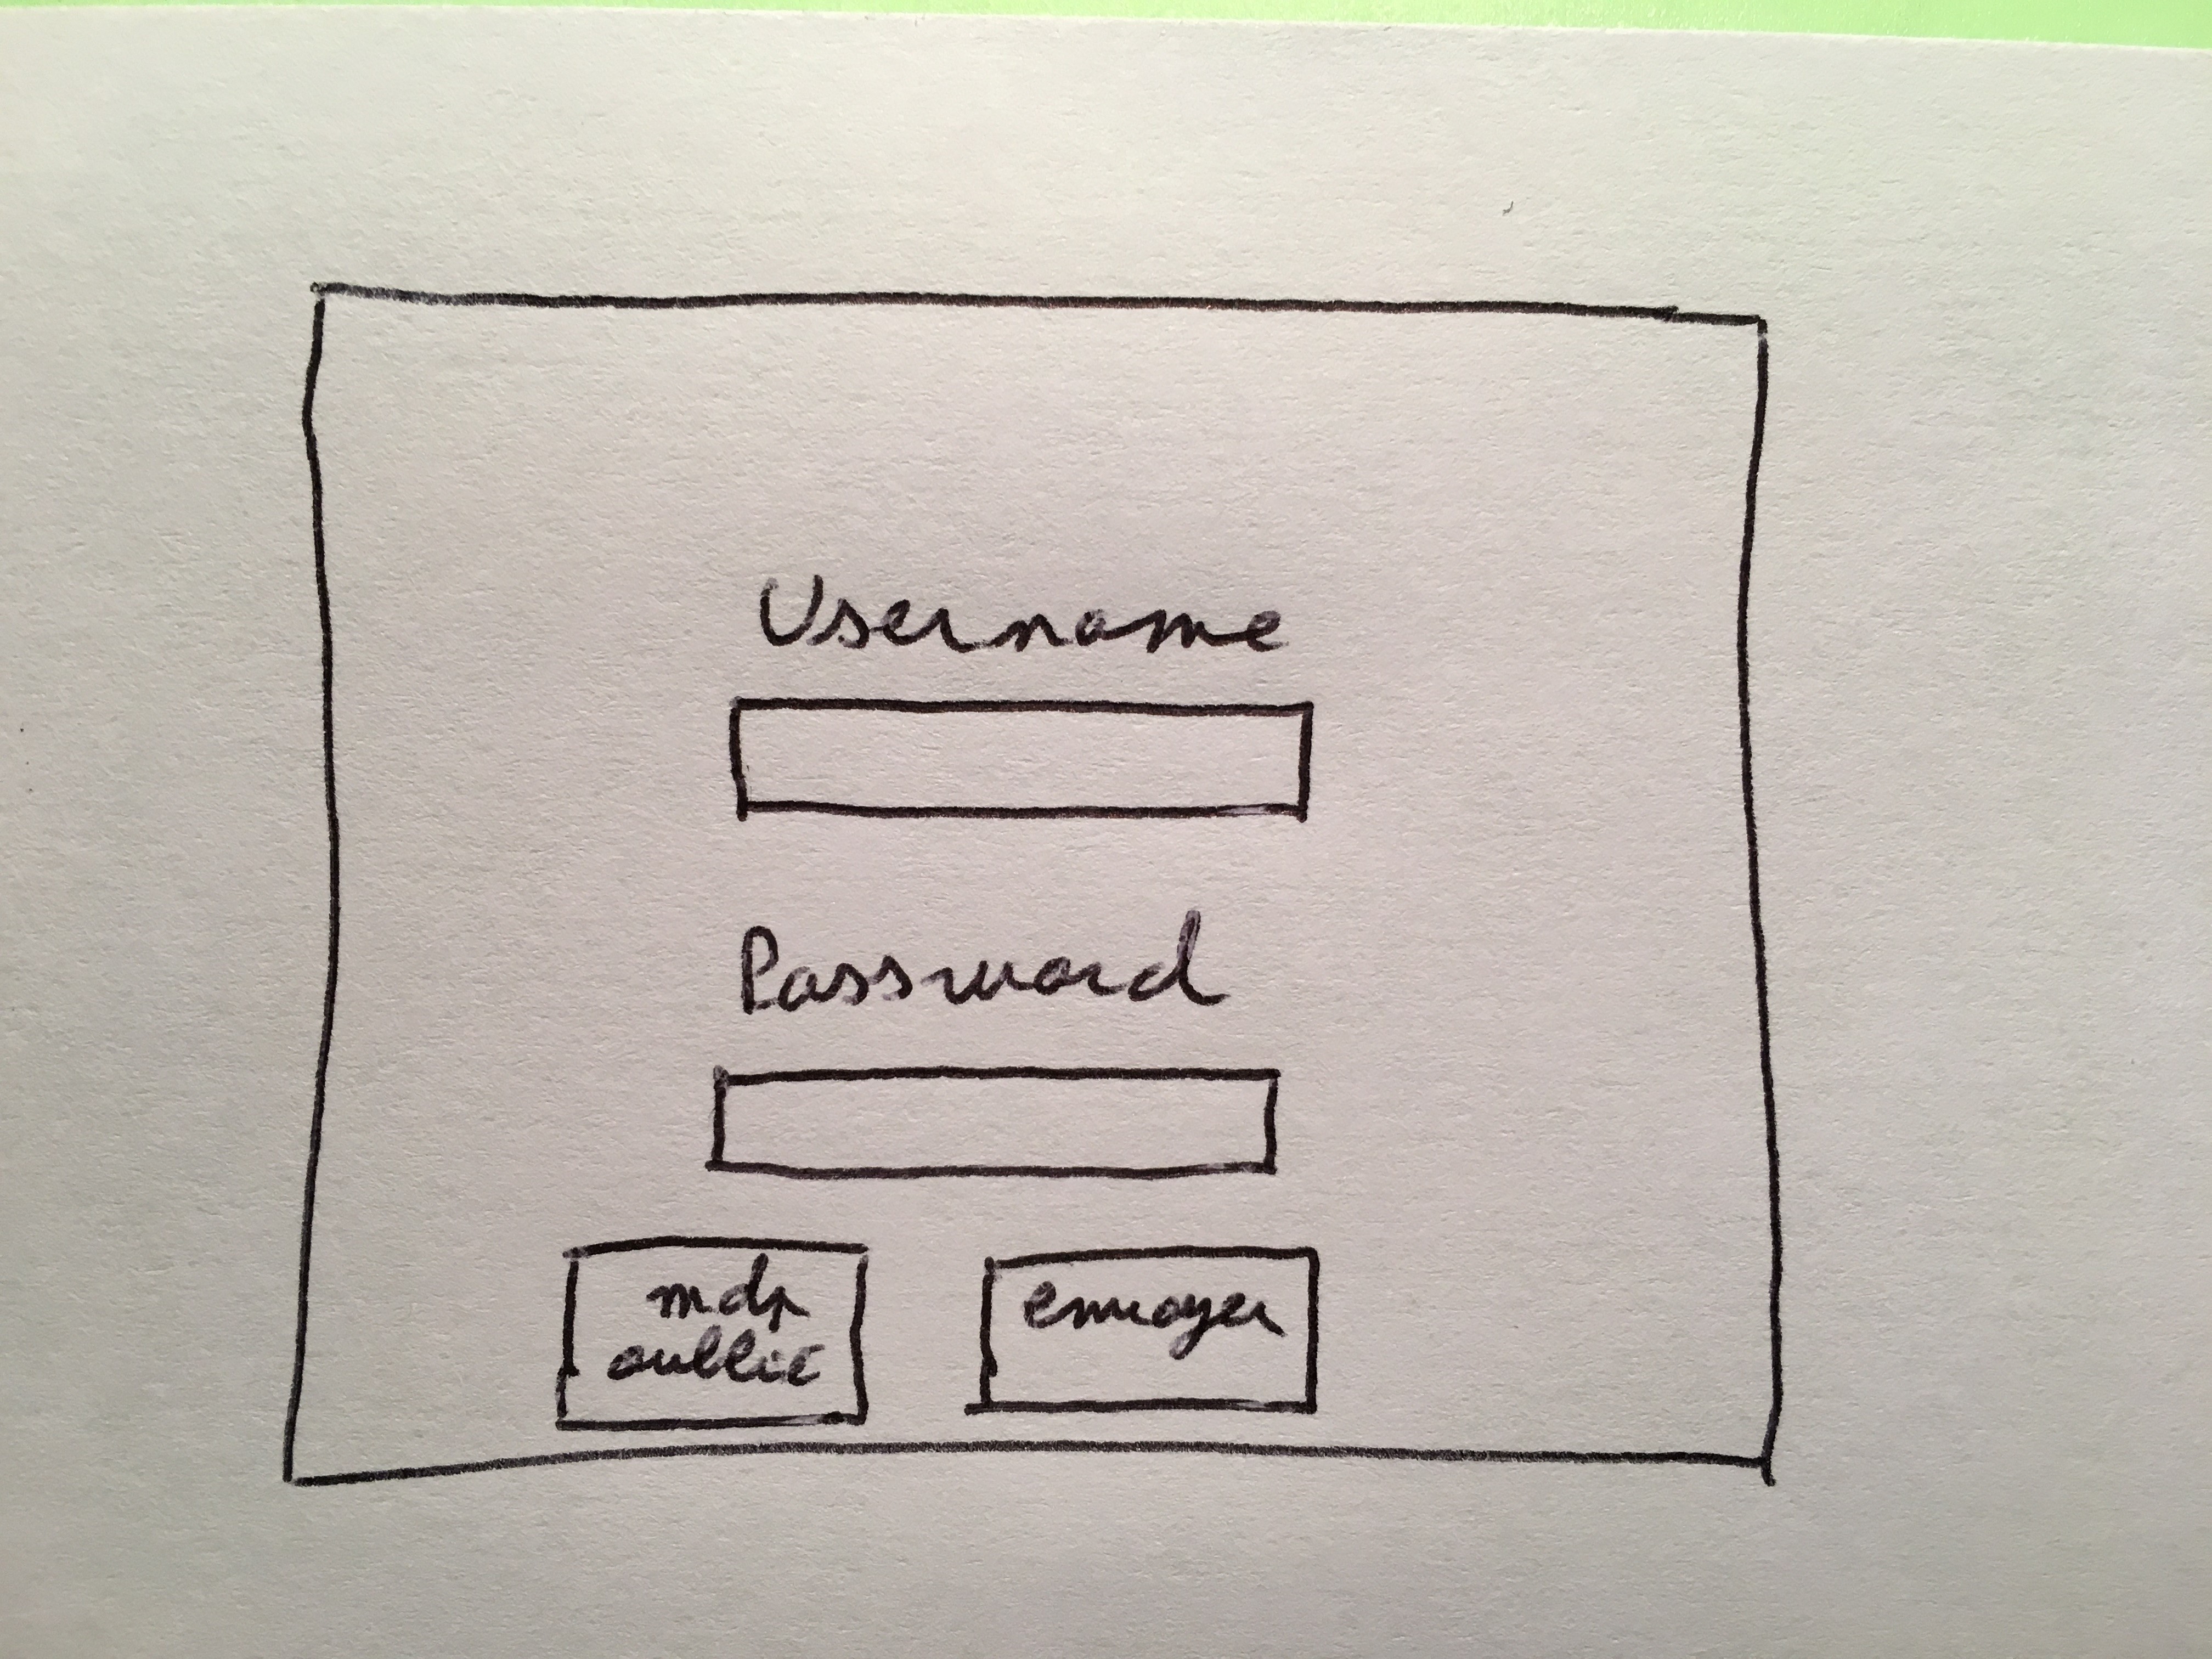 Username
Password
mdp
oublié
envoyer